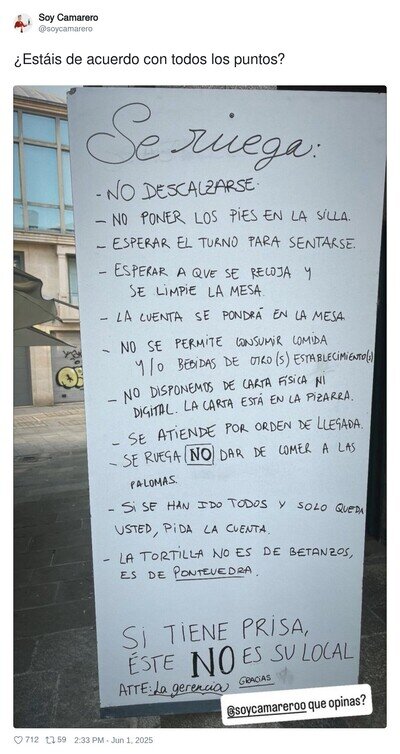 Soy Camarero
@soycamarero
¿Estáis de acuerdo con todos los puntos?
Se ruega:
- NO DESCALZARSE.
- NO PONER LOS PIES EN LA SILLA.
- ESPERAR EL TURNO PARA SENTARSE.
- ESPERAR A QUE SE RECOJA Y
SE LIMPIE LA MESA.
- LA CUENTA SE PONDRÁ EN LA MESA.
- NO SE PERMITE CONSUMIR COMIDA
Y/O BEBIDAS DE OTRO(S) ESTABLECIMIENTO(S)
- NO DISPONEMOS DE CARTA FÍSICA NI
DIGITAL. LA CARTA ESTÁ EN LA PIZARRA.
- SE ATIENDE POR ORDEN DE LLEGADA.
- SE RUEGA NO DAR DE COMER A LAS
PALOMAS.
- SI SE HAN IDO TODOS Y SOLO QUEDA
USTED, PIDA LA CUENTA.
- LA TORTILLA NO ES DE BETANZOS,
ES DE PONTEVEDRA.
SI TIENE PRISA,
ÉSTE NO ES SU LOCAL
ATTE: La gerencia GRACIAS
@soycamareroo que opinas?
712 59 2:33 PM - Jun 1, 2025